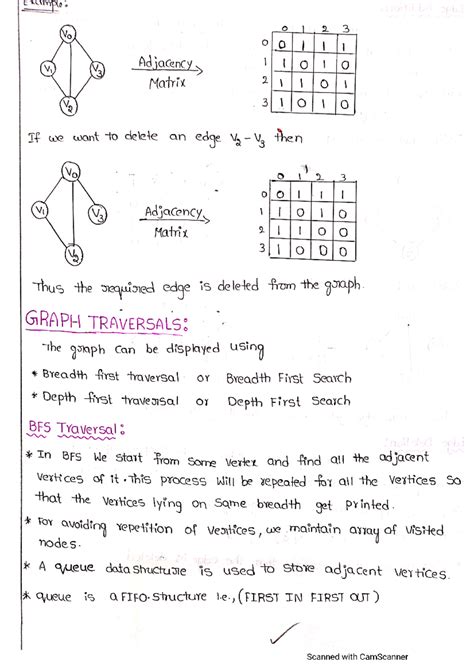 Example:
V0
V1
V3
V2
Adjacency
Matrix
0 1 2 3
0 0 1 1 1
1 1 0 1 0
2 1 1 0 1
3 1 0 1 0
If we want to delete an edge V2 - V3 then
V0
V1
V3
V2
Adjacency
Matrix
0 1 2 3
0 0 1 1 1
1 1 0 1 0
2 1 1 0 0
3 1 0 0 0
Thus the required edge is deleted from the graph.
GRAPH TRAVERSALS:
The graph can be displayed using
* Breadth first traversal or Breadth First Search
* Depth first traversal or Depth First Search
BFS Traversal:
* In BFS We start from some vertex and find all the adjacent
vertices of it. This process will be repeated for all the vertices so
that the vertices lying on same breadth get printed.
* For avoiding repetition of vertices, we maintain array of visited
nodes.
* A queue datastructure is used to store adjacent vertices.
* queue is a FIFO-structure i.e., (FIRST IN FIRST OUT)
Scanned with CamScanner